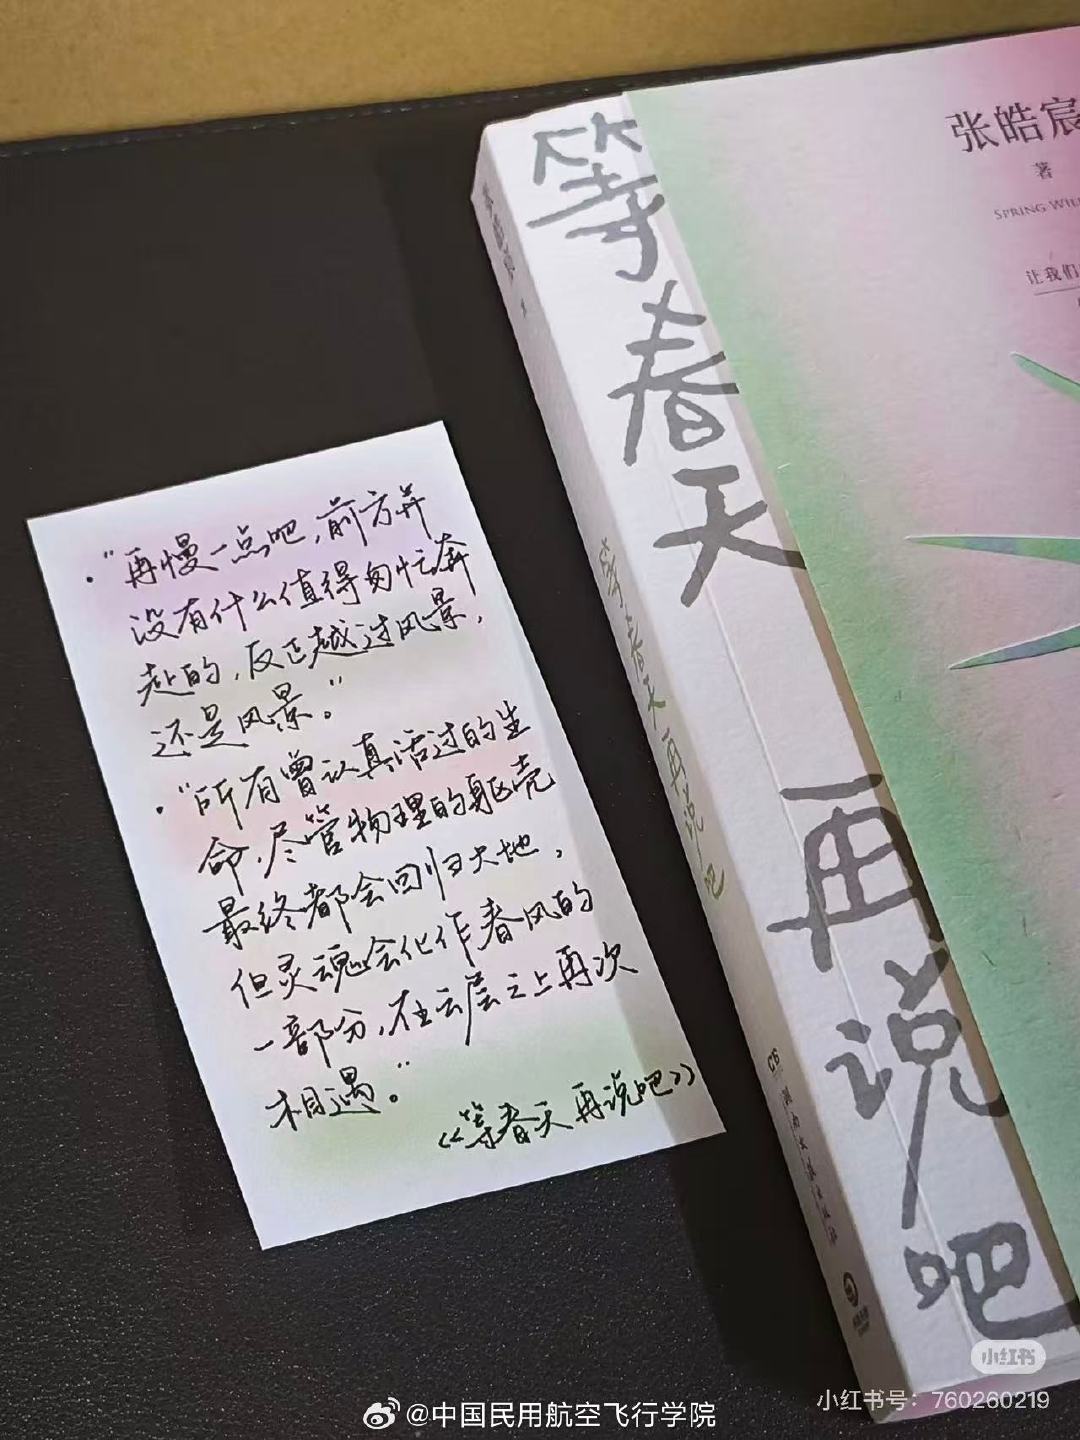 ·"再慢一点吧，前方并
没有什么值得匆忙奔
赴的，反正越过风景，
还是风景。"
·"所有曾认真活过的生
命，尽管物理的躯壳
最终都会回归大地，
但灵魂会化作春风的
一部分，在云层之上再次
相遇。"
《等春天再说吧》
等春天再说吧
等春天再说吧
湖南文艺出版社
张皓宸
著
SPRING WILL
让我们
小红书
小红书号：760260219
@中国民用航空飞行学院